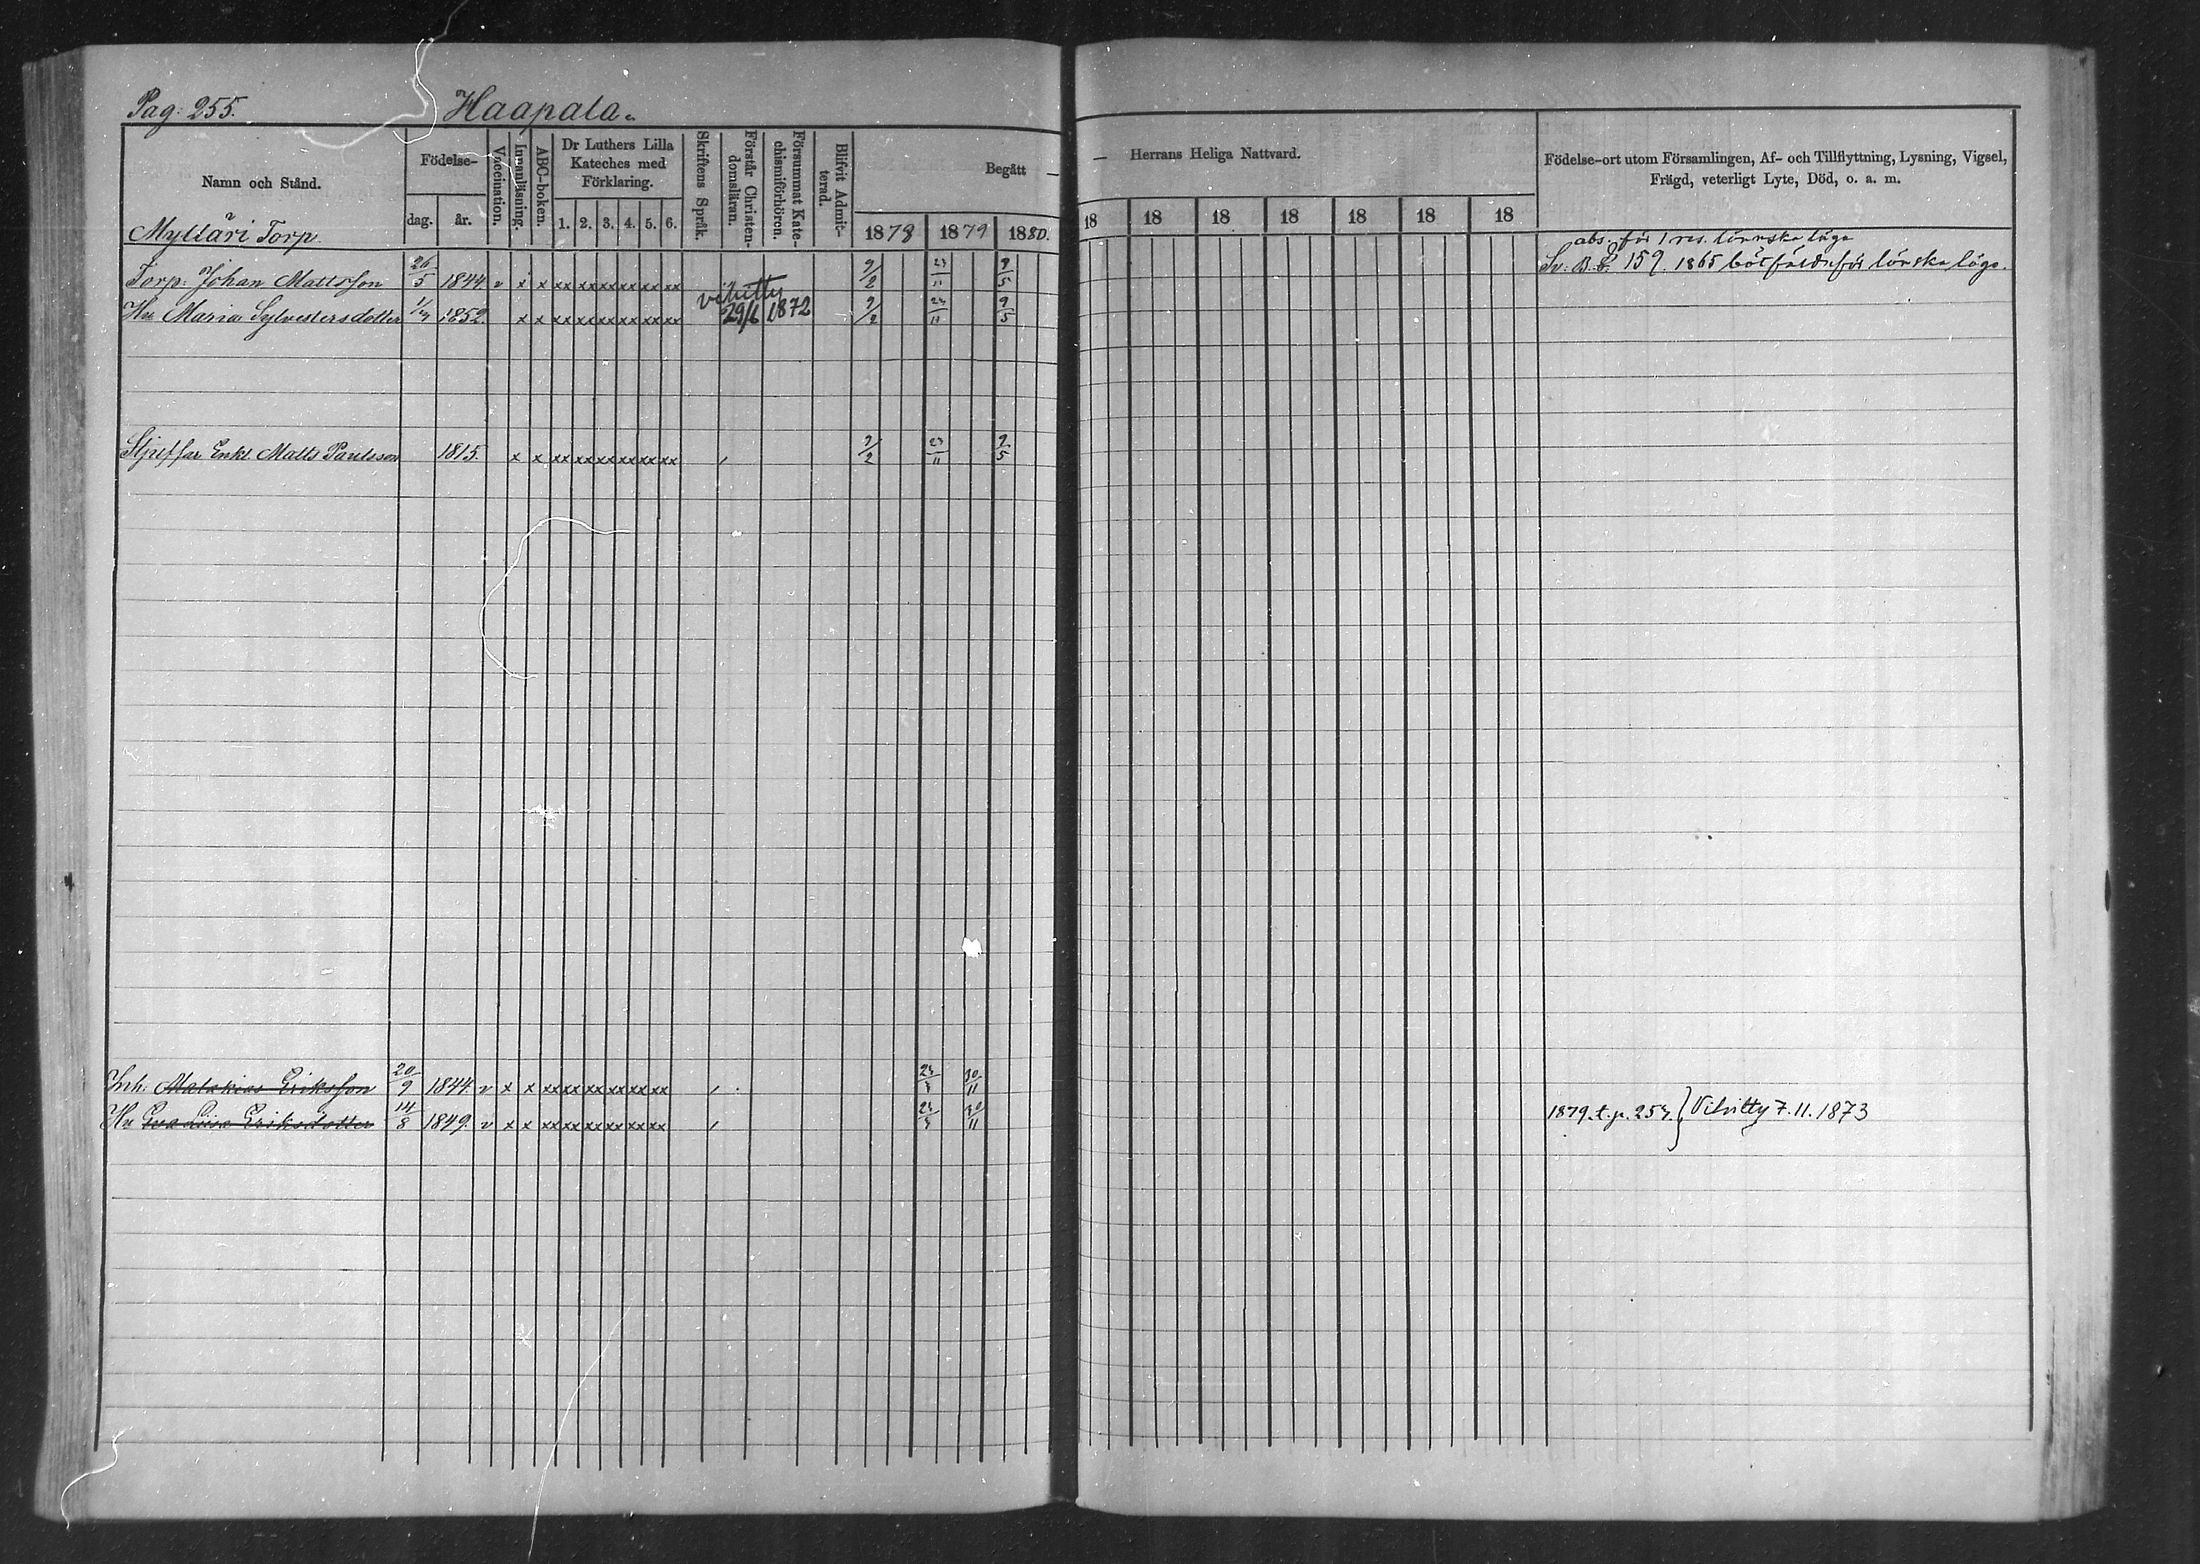 Pag: 255. Haapala.
Namn och Stånd. Födelse- dag. år. Vaccination. Innanläsning. ABC-boken. Dr Luthers Lilla Kateches med Förklaring. 1. 2. 3. 4. 5. 6. Skriftens Språk. Förstår Christen-domsläran. Försummat Kate-chismiförhören. Blifvit Admit-terad. Begått — 1878 1879 1880.
— Herrans Heliga Nattvard. 18 18 18 18 18 18 18
Födelse-ort utom Församlingen, Af- och Tillflyttning, Lysning, Vigsel,
Frägd, veterligt Lyte, Död, o. a. m.
Mylläri Torp.
abs. för 1 res. lönska läge
Torp: Johan Mattsson 26/5 1844 v x x xx xx xx xx xx xx 9/2 23/11 9/5 159. 1865 för lönska läge.
Hu Maria Sylvestersdotter 1852. x x xx xx xx xx xx xx vihitty 29/6 1872 9/2 23/11 9/5
Enkl Matts Paulsson 1815. x x xx xx xx xx xx xx 9/2 23/11 9/5
Inh: Malakias Eriksson 20/9 1844. v x x xx xx xx xx xx xx 30/11
Hu Eva Lisa Eriksdotter 14/8 1849. v x x xx xx xx xx xx xx 30/11 1879. t. p. 257. } Vihitty 7.11.1873